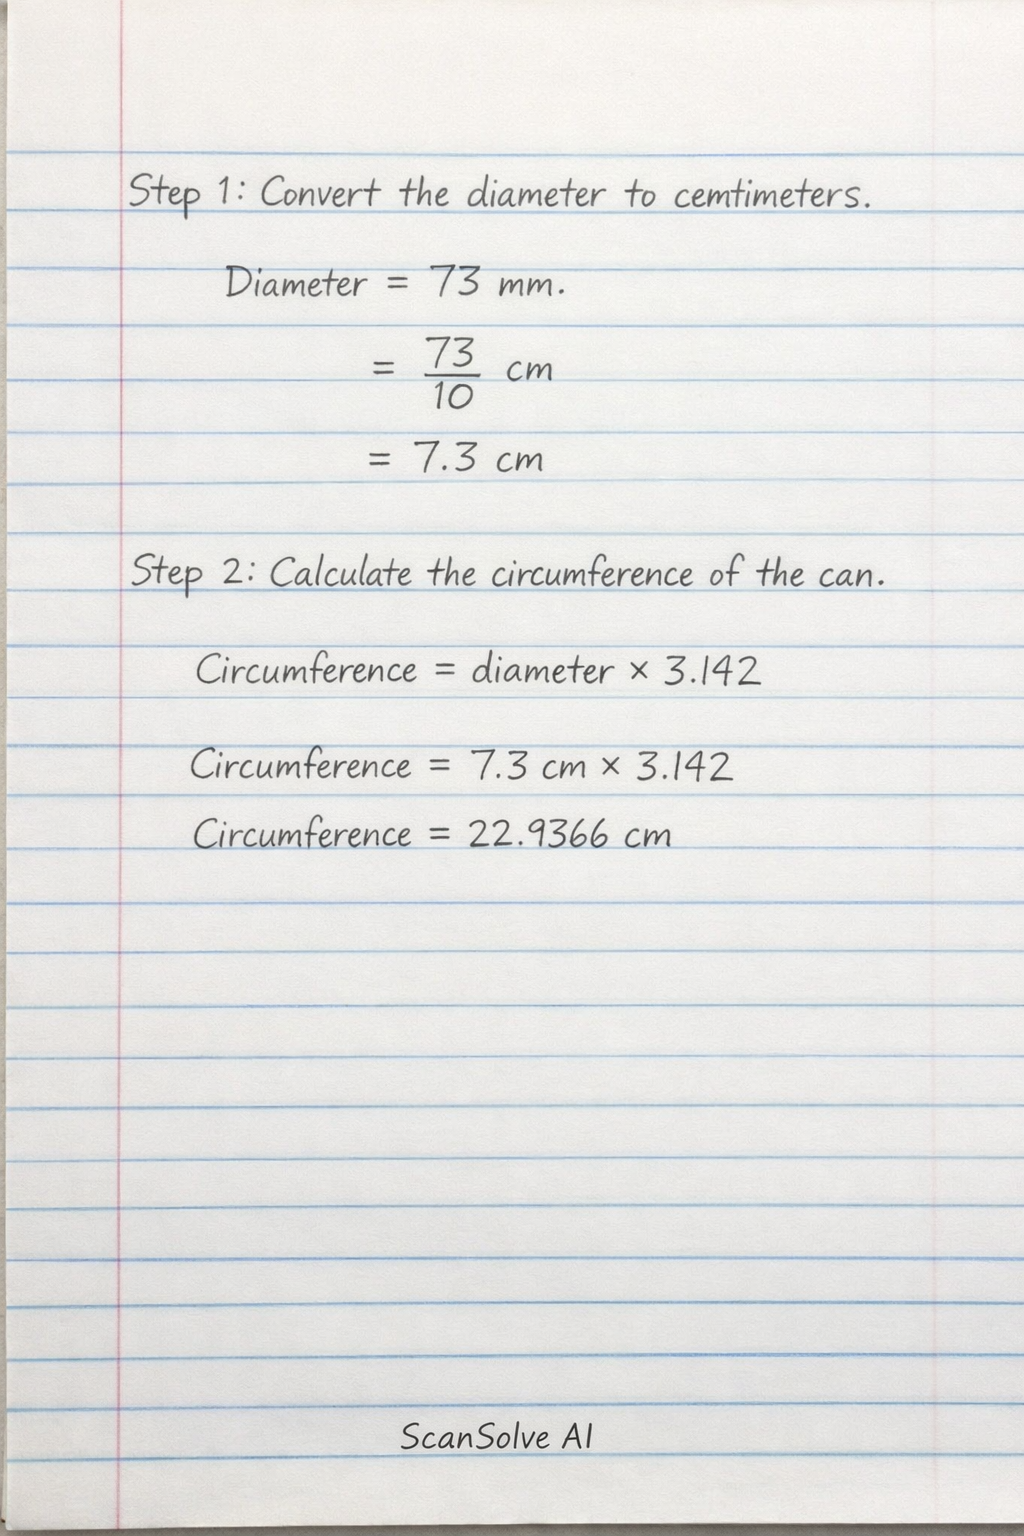 Step 1: Convert the diameter to cemtimeters.
Diameter = 73 mm.
= 73/10 cm
= 7.3 cm
Step 2: Calculate the circumference of the can.
Circumference = diameter × 3.142
Circumference = 7.3 cm × 3.142
Circumference = 22.9366 cm
ScanSolve AI